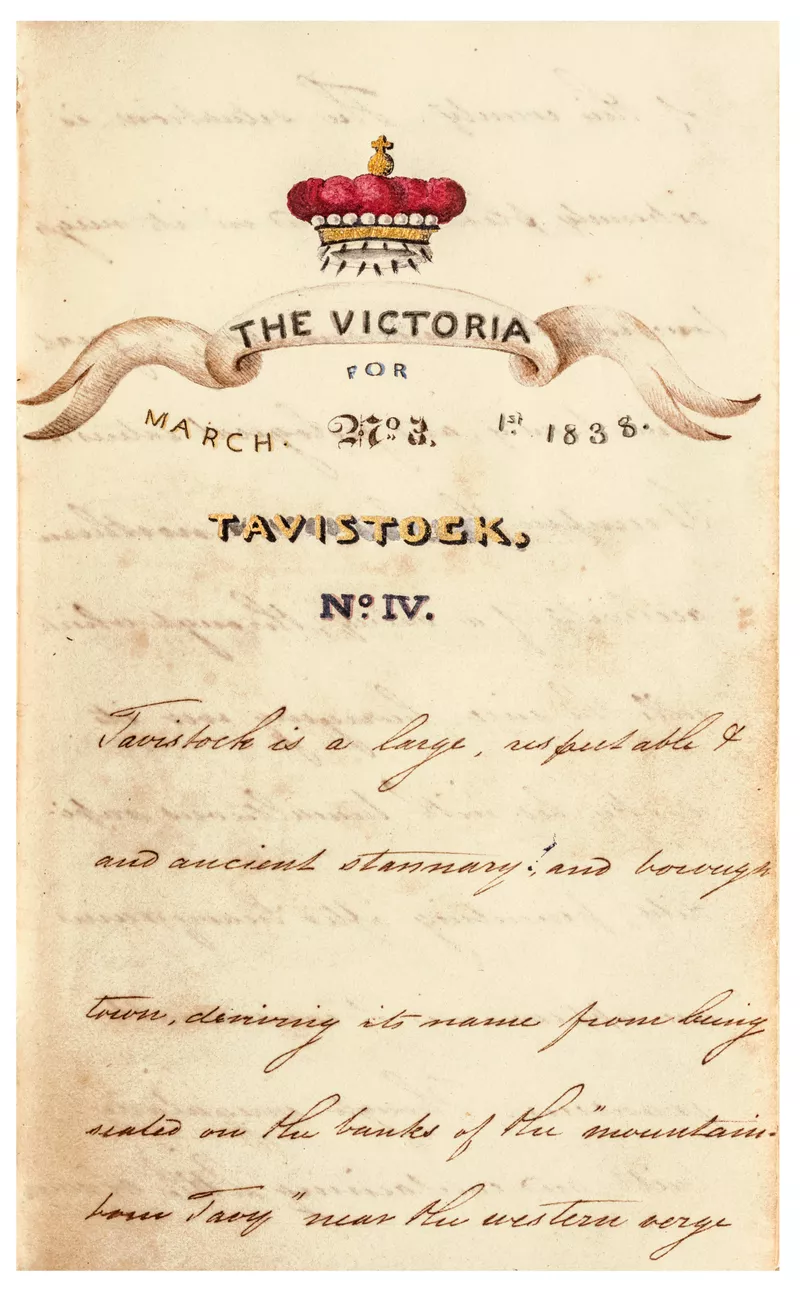 THE VICTORIA
FOR
MARCH. No 3. 1st. 1838.
TAVISTOCK,
No. IV.
Tavistock is a large, respectable &
and ancient stannary, and borough
town, deriving its name from being
seated on the banks of the "mountain-
born Tavy" near the western verge